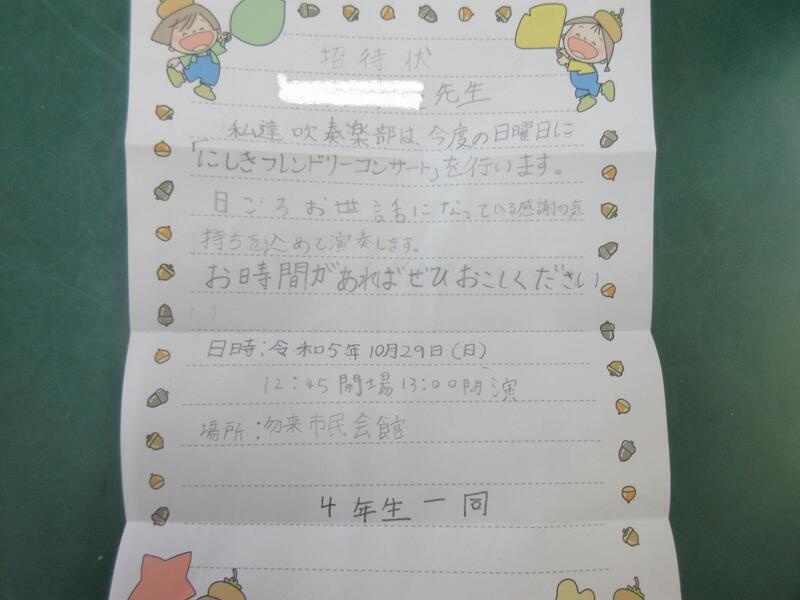 招待状
先生
私達吹奏楽部は、今度の日曜日に
「にしきフレンドリーコンサート」を行います。
日ごろお世話になっている感謝の気
持ちを込めて演奏します。
お時間があればぜひおこしください
日時:令和5年10月29日(日)
12:45開場13:00開演
場所:勿来市民会館
4年生一同